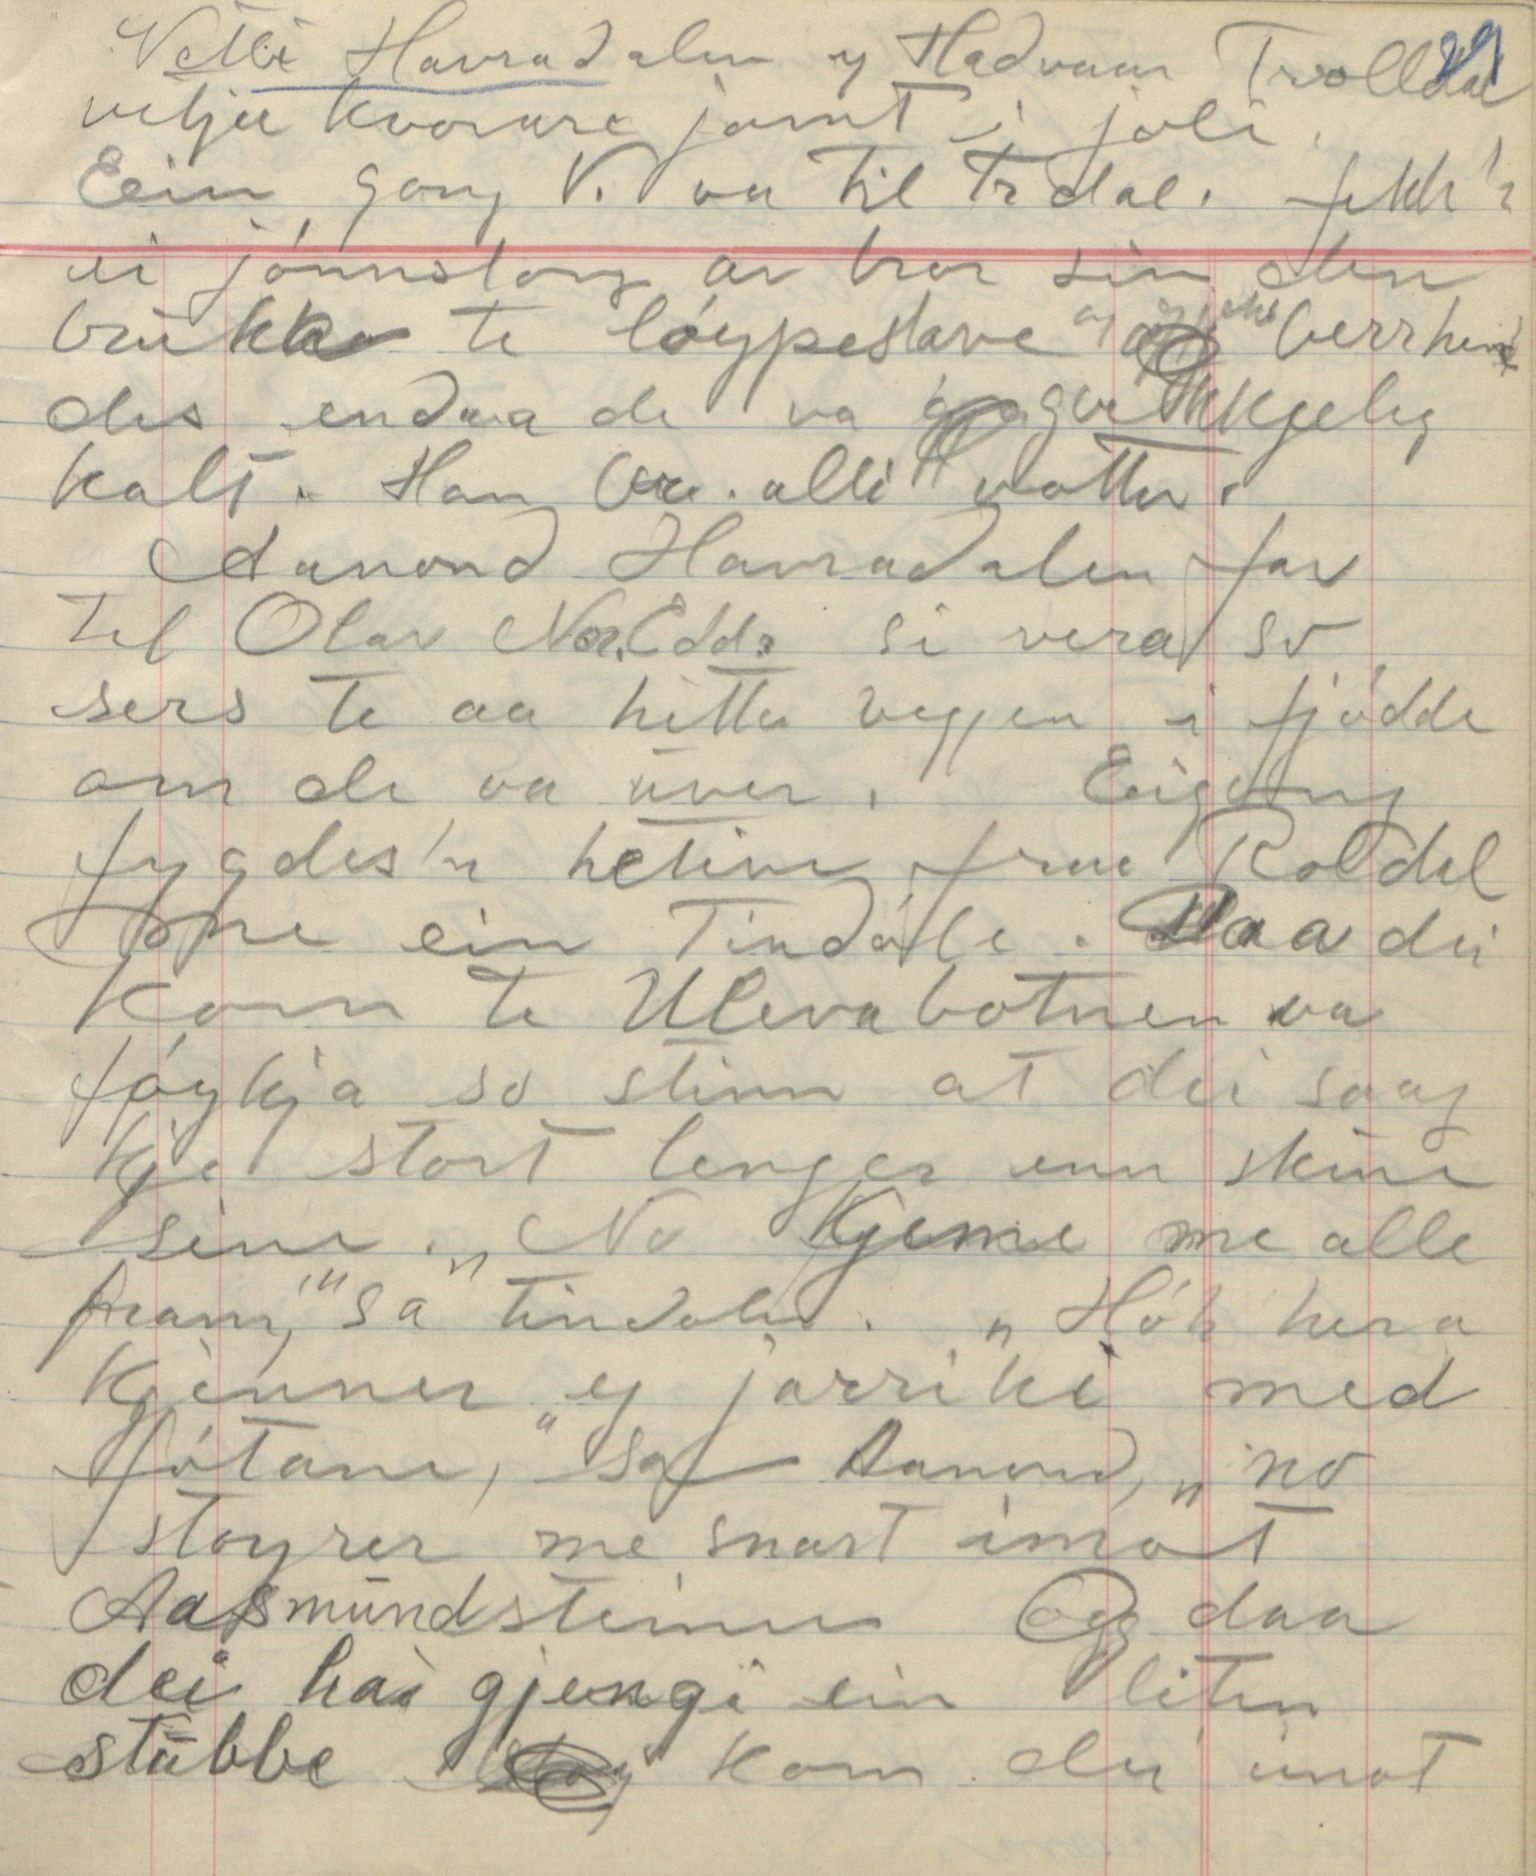 29
Vetli Havradalen og Hædvaar Trolldal
vitja kvorare jamt i joli.
Eein gong V. va til Trdal. fekk'n
ei jónnstong av bror sin den
brukka te løypestave og gjekk berrhend
des endaa de va gagn ikkjelig
kalt. Han bra. alli votter.
Aanond Havradalen far
til Olav Nor.Edd. si vera so
sers te aa hitta vegjen i fjødde
om de va uver. Eigong
fygdes'n heim fraa Roldal
me ein Tindøle. Daa dei
kom te Ulevabotnen va
føykja so stinn at dei saag
kje stort lenger enn skiine
sine. „No kjeme me alle
fram," sa tindølen. „Hók hera
kjenner eg jarrike med
fótane," sa Aanond, „no
støyrer me snart imot
Aasmundsteinen Og daa
dei hai gjengi ein liten
stubbe kom dei imot